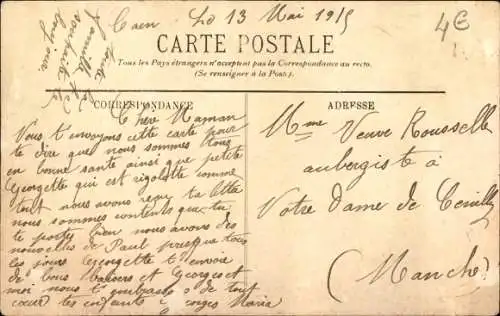 Caen Le 13 Mai 1915
4€
CARTE POSTALE
Tous les Pays étrangers n'acceptent pas la Correspondance au recto.
(Se renseigner à la Poste.)
toute la
famille te
souhaite le
bonjour
CORRESPONDANCE
Chère Maman
Nous t'envoyons cette carte pour
te dire que nous sommes tous
en bonne santé ainsi que petite
Georgette qui est rigolotte comme
tout nous avons reçu ta lettre
nous sommes contents que tu
te portes bien nous avons des
nouvelles de Paul presque tous
les jours Georgette t'envoie
de bons baisers et Georges et
moi nous t'embrassons de tout
cœur tes enfants Georges Maria
ADRESSE
Mme Veuve Rousselle
aubergiste à
Notre Dame de Cenilly
(Manche)